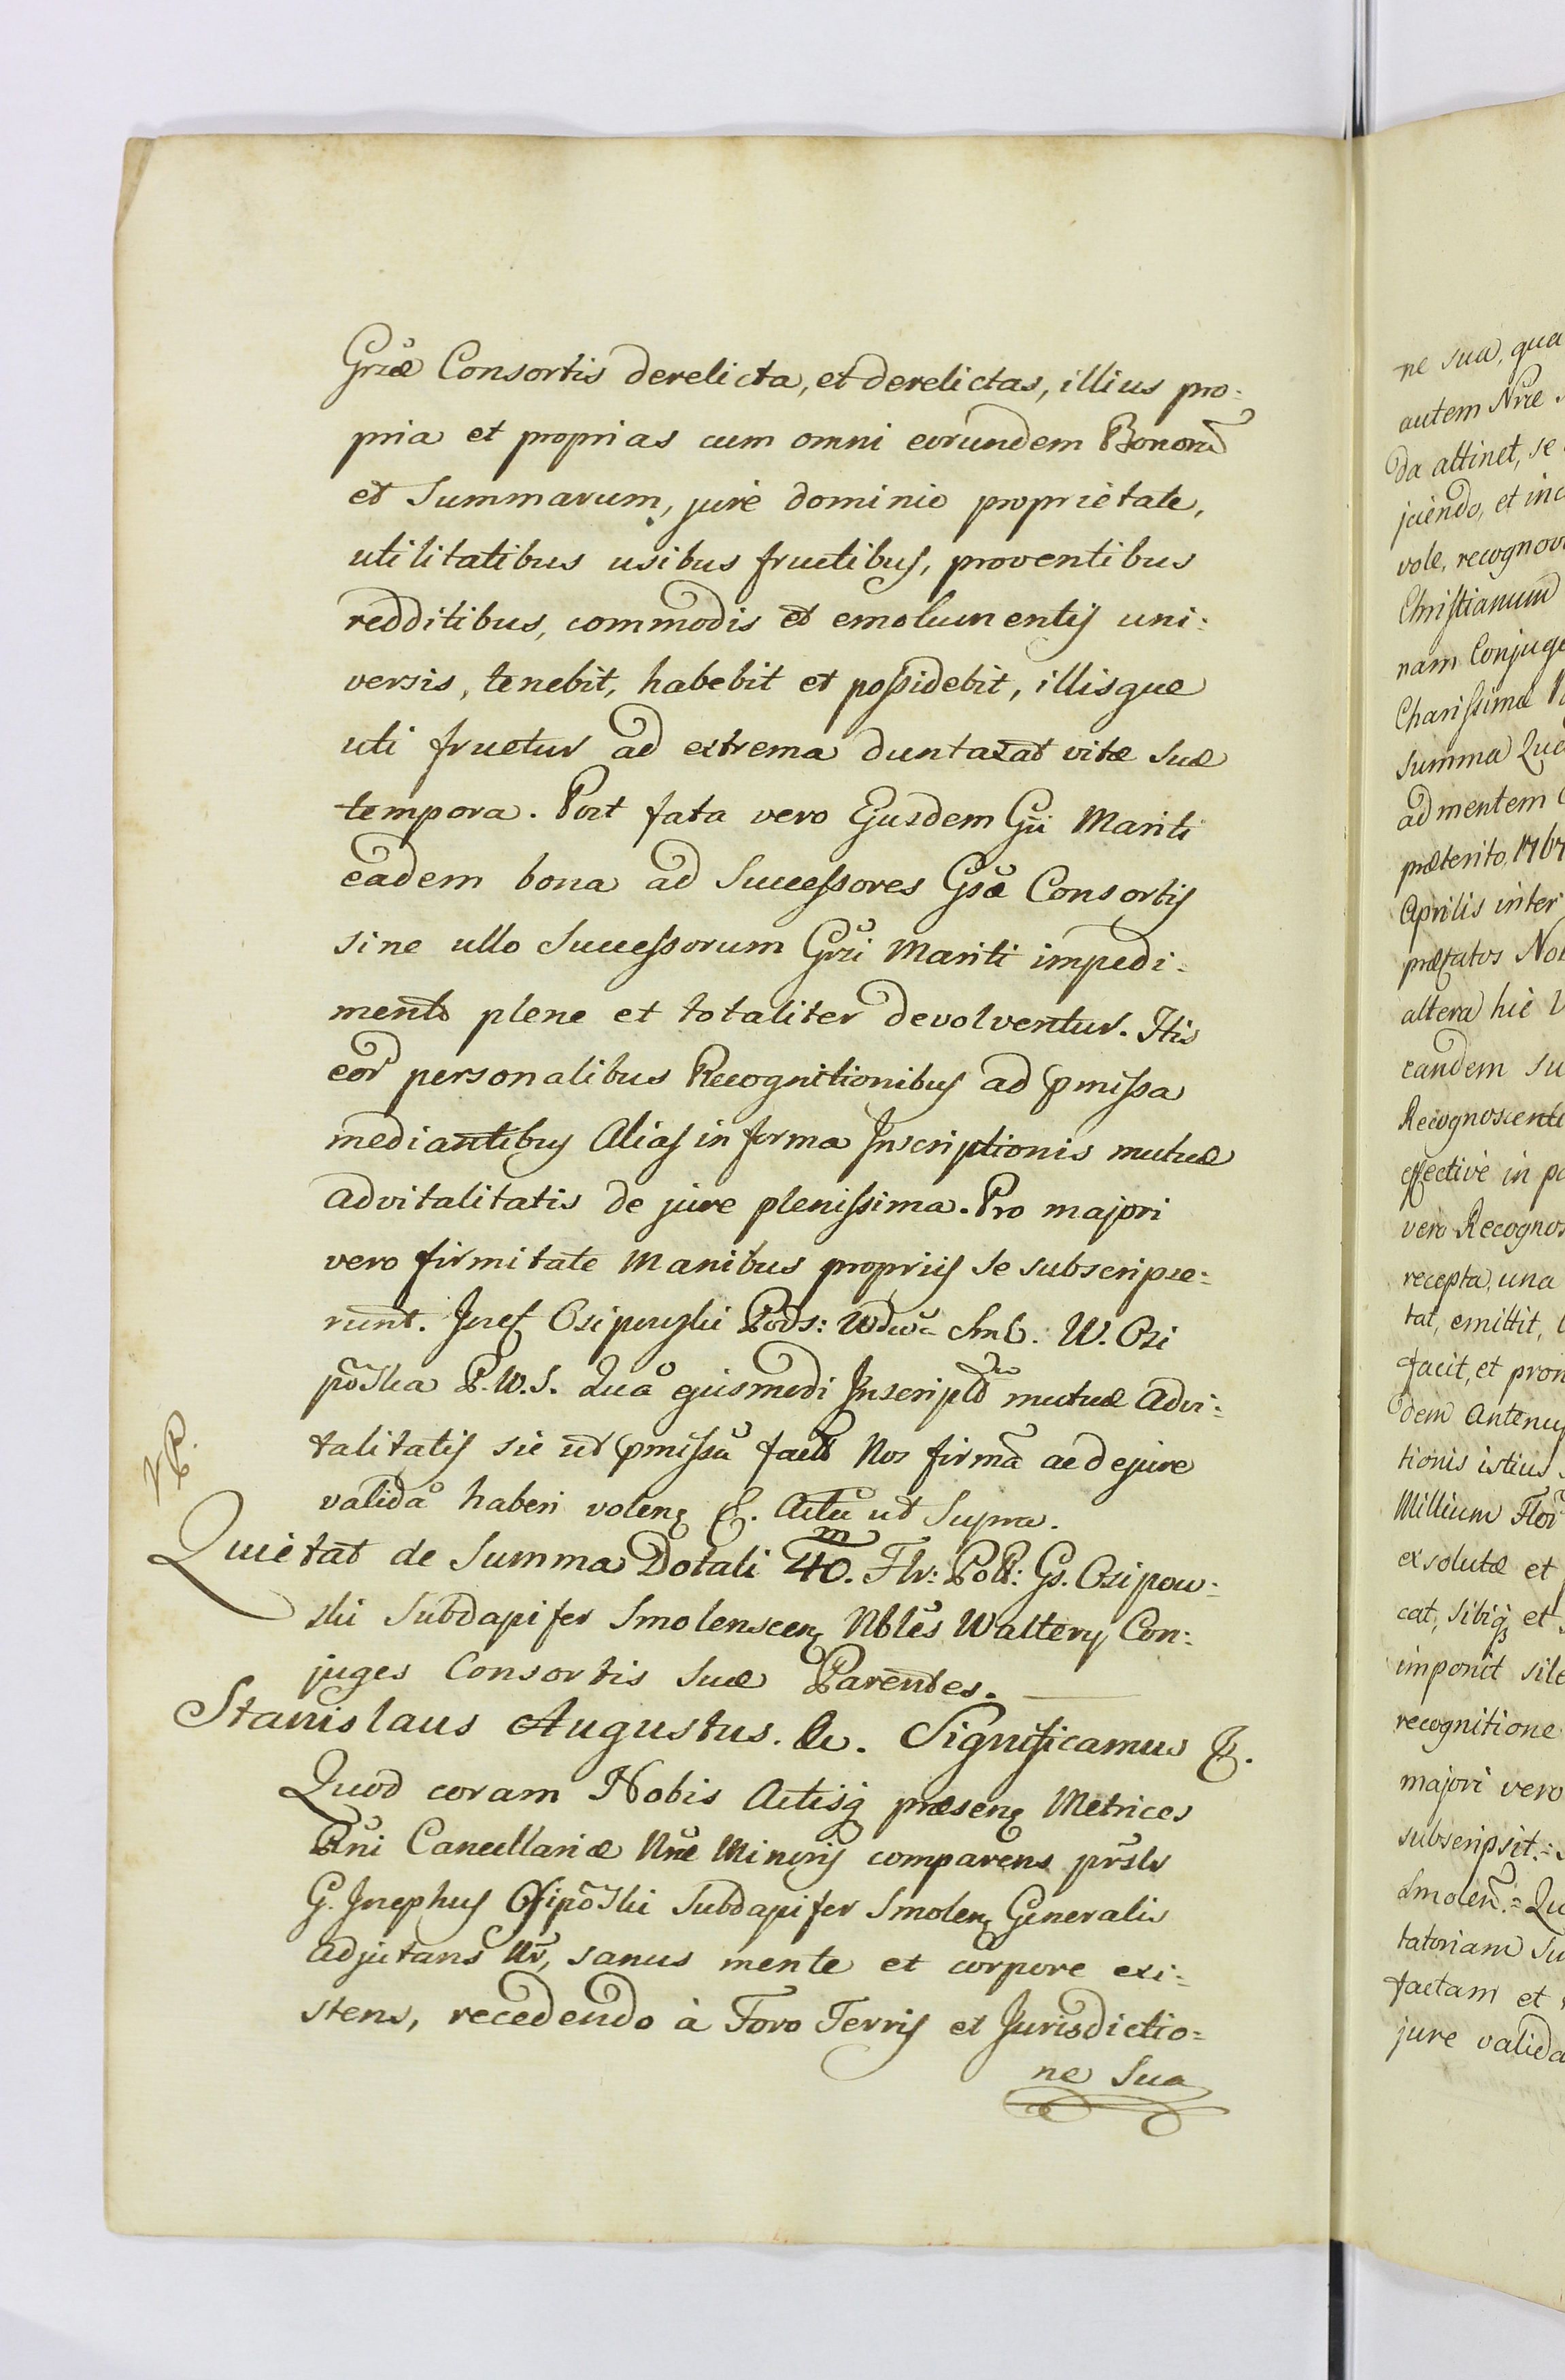 Grsæ Consortis derelicta, et derelictas, illius pro:
pria et proprias cum omni eorundem Bonor
et Summarum, jure dominio proprietate,
utilitatibus usibus fructibus, proventibus
redditibus, commodis et emolumentis uni:
versis, tenebit, habebit et possidebit, illisque
uti fruetur ad extrema duntaxat vitæ suæ
tempora. Post fata vero Ejusdem Gsi Mariti
eadem bona ad Successores Gsæ Consortis
sine ullo Successorum Grsi Mariti impedi:
mento plene et totaliter devolventur. His
eor personalibus Recognitionibus ad pmissa
mediantibus Alias in forma Inscriptionis mutuæ
advitalitatis de jure plenissima. Pro majori
vero firmitate Manibus propriis se subscripse:
runt. Josef Osipowski Pods: Wdwa Sml. W. Osi
poska P.W.S. Qua ejusmodi Inscripto mutuæ Advi:
talitatis sic ut pmissu facto Nos firma ac de jure
valida haberi volen &. Actu ut Supra.
VR.
Quietat de Summa Dotali 40. m Flr: Poll: Gs. Osipow:
ski Subdapifer Smolenscen Nbles Waltery Con:
juges Consortis Suæ Parentes.
Stanislaus Augustus. &. Significamus &.
Quod coram Nobis Actisq præsen Metrices
Rni Cancellariæ Nræ Minoris comparens prsls
G. Josephus Osiposki Subdapifer Smolen Generalis
adjutans Nr, sanus mente et corpore exi:
stens, recedendo à Foro Terris et Jurisdictio:
ne Sua
ne sua, qua
autem Nræ
da attinet, se
jciendo, et inc
vole, recognovi
Christianum
nam Conjuge
Charissimæ
Summa Qua
ad mentem
præterito 1767
Aprilis inter
præfatos Nob
altera hic
eandem su
Recognoscenti
effective in po
vero Recognos
recepta, una
tat, emittit,
facit, et pron
dem Antenup
tionis istius
Millium Flor
exsolutæ et
cat, sibiq et
imponit sile
recognitione
majori vero
subscripsit.=
Smolen.= Qu
tatoriam su
factam et
jure valida